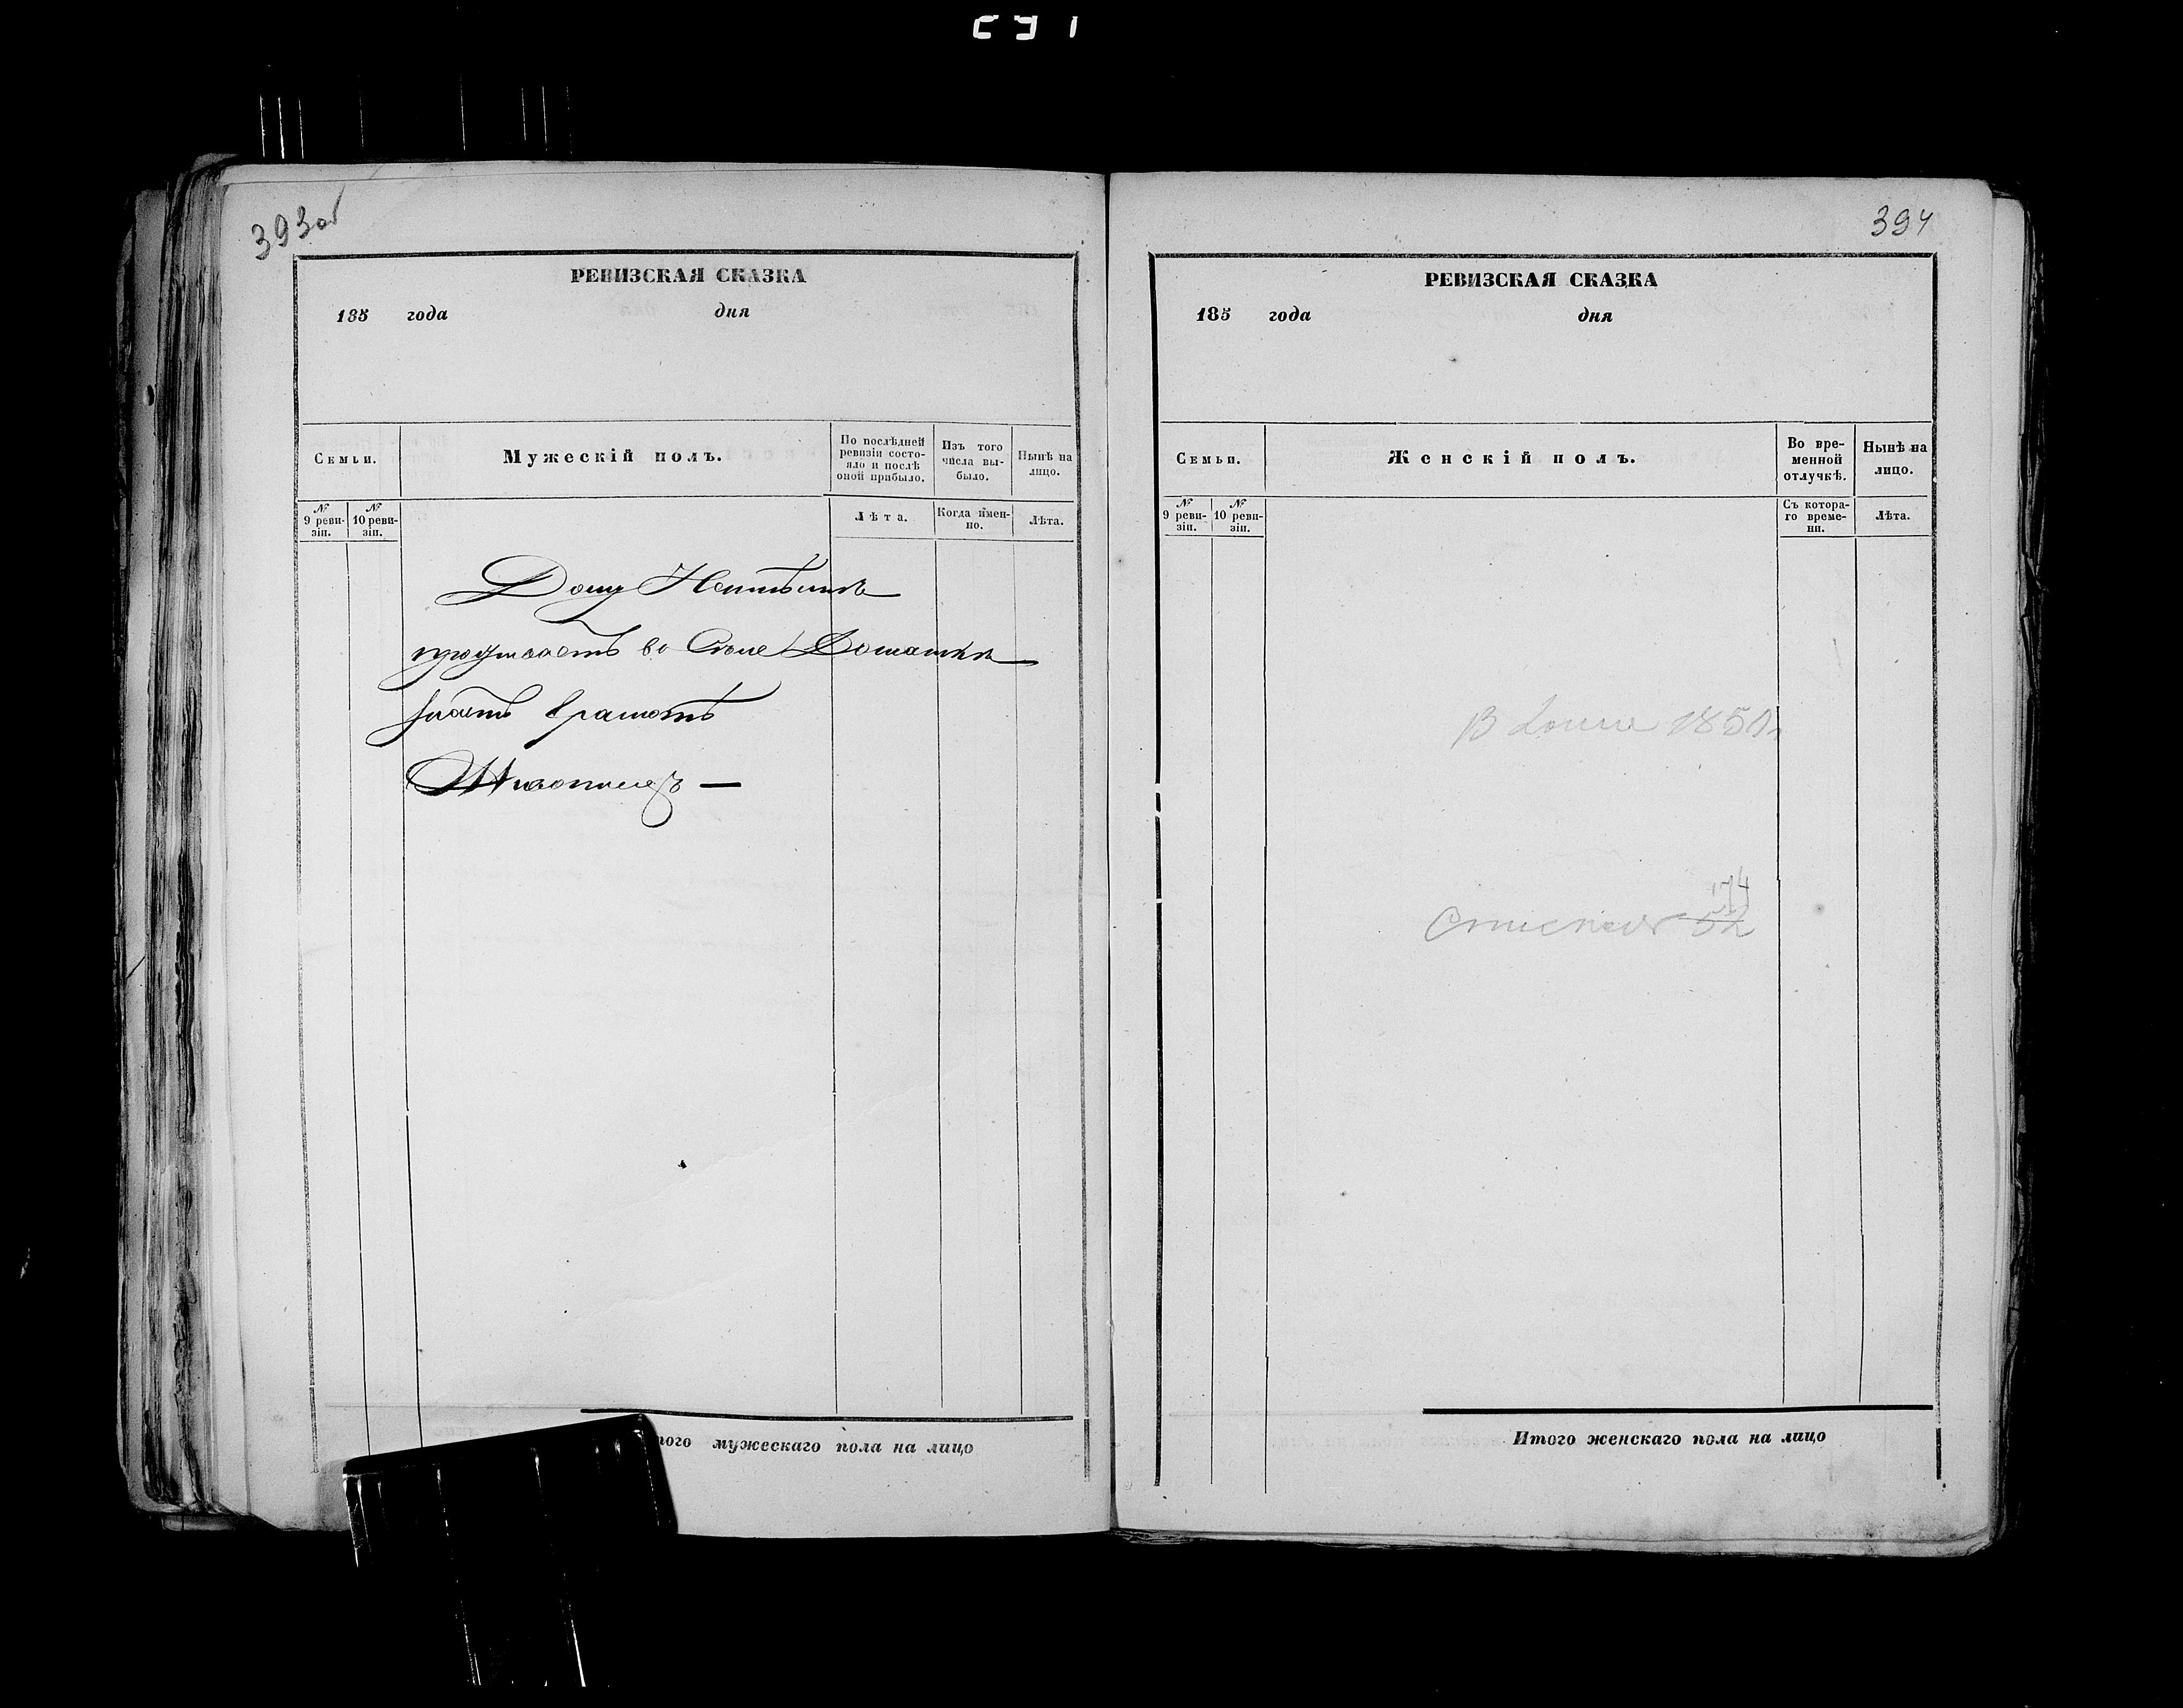 393об
РЕВИЗСКАЯ СКАЗКА
185 года дня
Семьи.
Мужескій полъ.
По послѣдней ревизіи состояло и послѣ оной прибыло.
Изъ того числа выбыло.
Нынѣ на лицо.
№ 9 ревизіи.
№ 10 ревизіи.
Лѣта.
Когда именно.
Лѣта.
Дому
во
Живописецъ —
того мужескаго пола на лицо
394
РЕВИЗСКАЯ СКАЗКА
185 года дня
Семьи.
Женскій полъ.
Во временной отлучкѣ.
Нынѣ на лицо.
№ 9 ревизіи.
№ 10 ревизіи.
Съ котораго времени.
Лѣта.
В 1850г
174
52
Итого женскаго пола на лицо